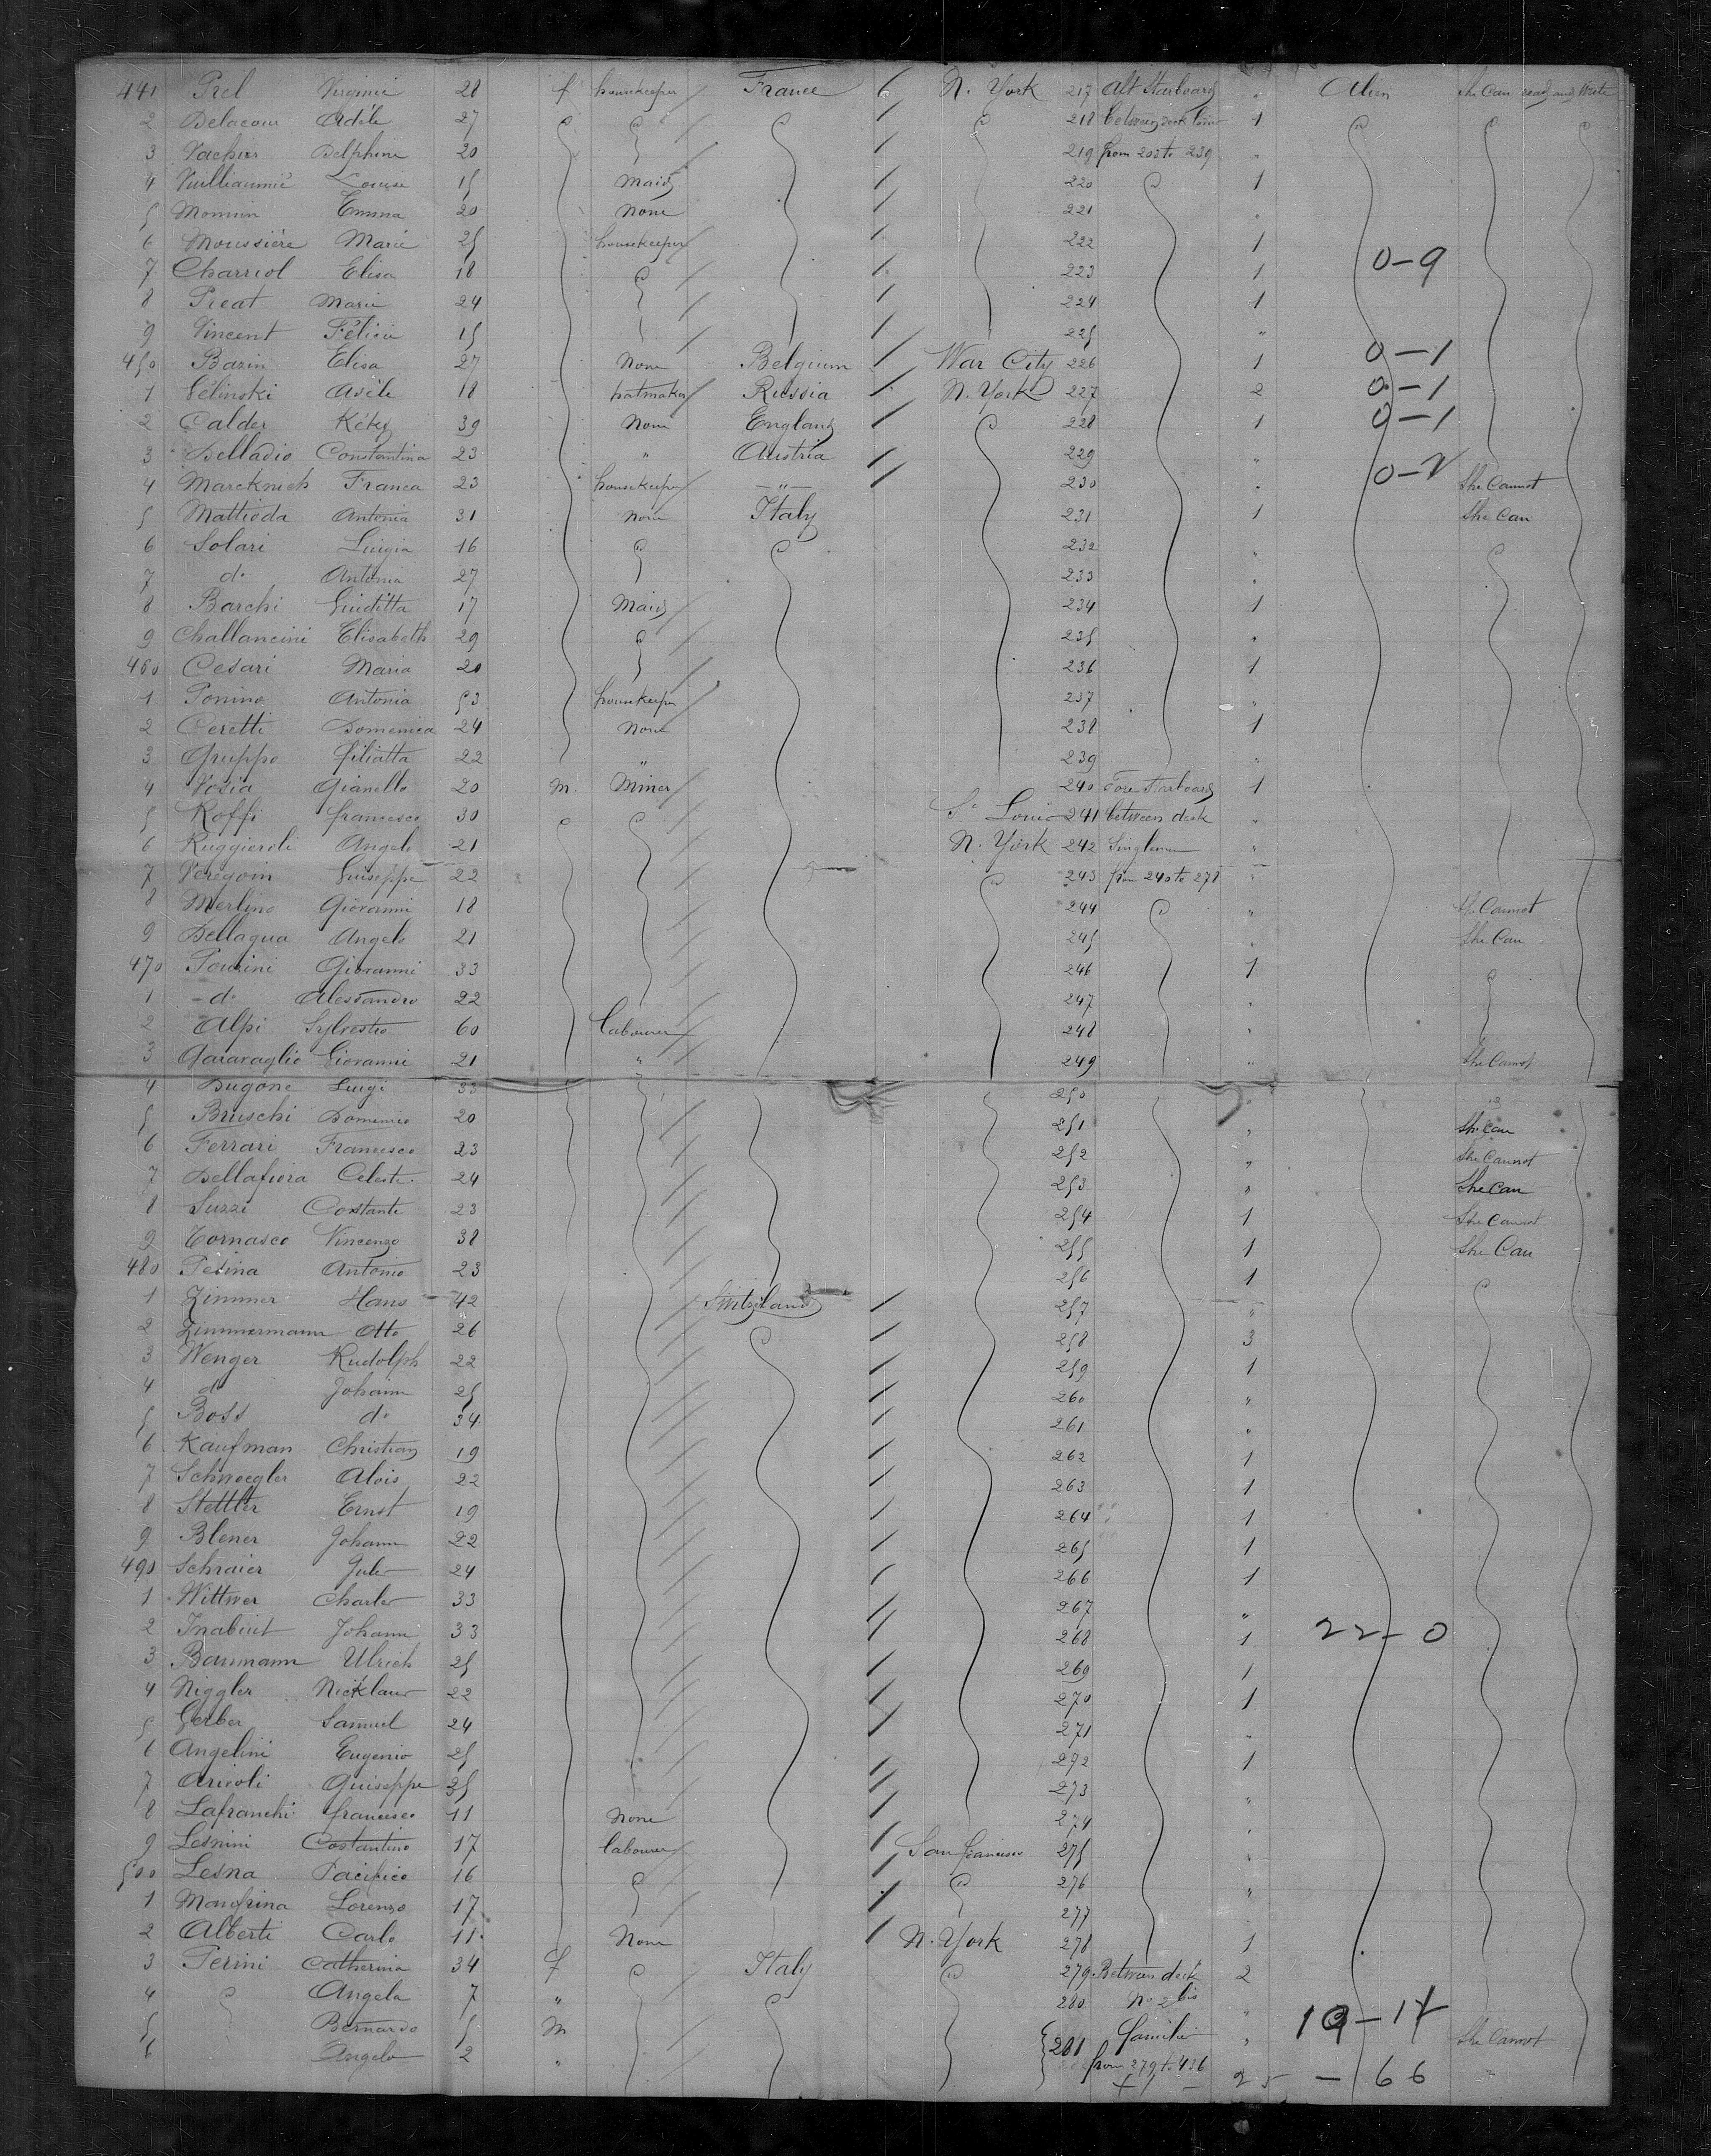 441 Prel Virginie 28 f housekeeper France 6 N. York 217 Aft Starboard " Alien She Can read and Write
2 Delacour Adèle 27 218 between deck 1
3 Vacher Delphine 20 219 from 203 to 239 "
4 Vuilliaumié Louise 15 Maid 220 1
5 Monnin Emma 20 None 221 "
6 Moussière Marie 25 housekeeper 222 1
7 Charriol Elisa 18 223 1 0-9
8 Preat Marie 24 224 1
9 Vincent Félicie 15 225 "
450 Bazin Elisa 27 None Belgium War City 226 1 0-1
1 Gélinski Asèle 18 hatmaker Russia N. York 227 2 0-1
2 Calder Kétty 39 None England 228 1 0-1
3 Delladio Constantina 23 " Austria 229 "
4 Marcknich Franca 23 housekeeper -"- 230 " 0-2 She Cannot
5 Mattioda Antonia 31 None Italy 231 1 She Can
6 Solari Luigia 16 232 "
7 do Antonia 27 233 "
8 Barchi Giuditta 17 Maid 234 1
9 Challancini Elisabeth 29 235 "
460 Cesari Maria 20 236 1
1 Ponino Antonia 53 housekeeper 237 "
2 Ceretti Domenica 24 None 238 1
3 Gruppo filiatta 22 " 239 "
4 Vozia Gianello 20 m. Miner 240 Fore Starboard 1
5 Roffi francesco 30 St Louis 241 between deck "
6 Ruggieroli Angelo 21 N. York 242 Singlemen "
7 Veregoin Guiseppe 22 243 from 240 to 278 "
8 Merlino Giovanni 18 244 " She Cannot
9 Dellaqua Angelo 21 245 " She Can
470 Pouzini Giovanni 33 246 1
1 - do Alessandro 22 247 "
2 Alpi Sylvestro 60 labourer 248 "
3 Garavaglio Giovanni 21 " 249 " She Cannot
4 Dugone Luigi 33 250 "
5 Bruschi Domenico 20 251 " She Can
6 Ferrari Francesco 23 252 " She Cannot
7 Dellafiora Celeste 24 253 " She Can
8 Suzzi Costante 23 254 1 She Cannot
9 Tornasco Vincenzo 38 255 1 She Can
480 Pesina Antonio 23 256 1
1 Zimmer Hans 42 Switzerland 257 "
2 Zimmermann Otto 26 258 3
3 Wenger Rudolph 22 259 1
4 do Johann 25 260 "
5 Boss do 34 261 "
6 Kaufman Christian 19 262 1
7 Schnoegler Alois 22 263 1
8 Stettler Ernst 19 264 1
9 Blener Johann 22 265 1
490 Schraier Jules 24 266 1
1 Wittwer Charles 33 267 "
2 Inabnit Johann 33 268 1 22-0
3 Baumann Ulrich 25 269 1
4 Niggler Nicklaus 22 270 1
5 Gerber Samuel 24 271 "
6 Angelini Eugenio 25 272 1
7 Arivoli Guiseppe 35 273 "
8 Lafranchi francesco 11 None 274 "
9 Lesnini Costantino 17 labourer San francisco 275 "
500 Lesna Pacifico 16 276 "
1 Manfrina Lorenzo 17 277 "
2 Alberti Carlo 11 None N. York 278 1
3 Perini Catherina 34 f Italy 279 Between deck 2
4 Angela 7 " 280 No 2 bis "
5 Bernardo 5 m 281 families " 19-17 She Cannot
6 Angelo 2 " from 279 to 436
25 - 66